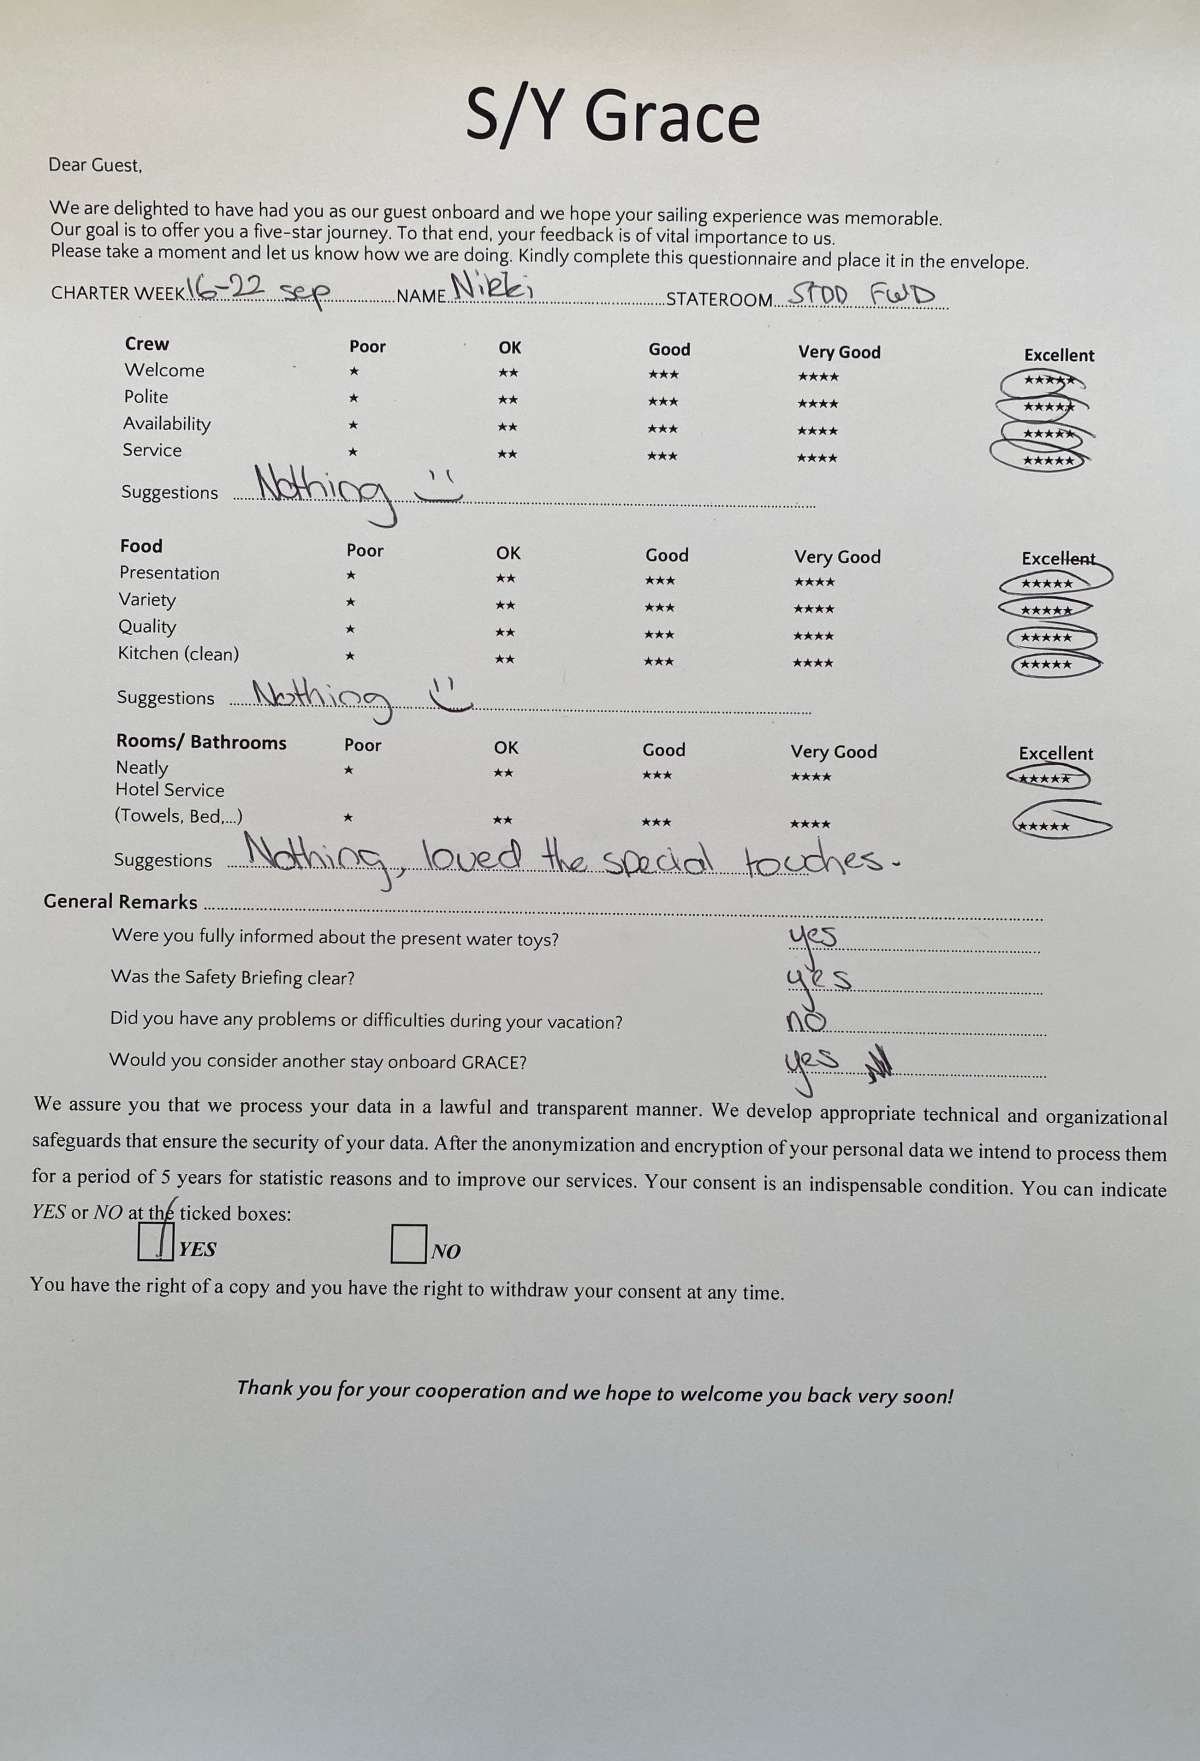 S/Y Grace
Dear Guest,
We are delighted to have had you as our guest onboard and we hope your sailing experience was memorable.
Our goal is to offer you a five-star journey. To that end, your feedback is of vital importance to us.
Please take a moment and let us know how we are doing. Kindly complete this questionnaire and place it in the envelope.
CHARTER WEEK 16-22 sep NAME Nikki STATEROOM STDD FWD
Crew Poor OK Good Very Good Excellent
Welcome ★ ★★ ★★★ ★★★★ ★★★★★
Polite ★ ★★ ★★★ ★★★★ ★★★★★
Availability ★ ★★ ★★★ ★★★★ ★★★★★
Service ★ ★★ ★★★ ★★★★ ★★★★★
Suggestions Nothing
Food Poor OK Good Very Good Excellent
Presentation ★ ★★ ★★★ ★★★★ ★★★★★
Variety ★ ★★ ★★★ ★★★★ ★★★★★
Quality ★ ★★ ★★★ ★★★★ ★★★★★
Kitchen (clean) ★ ★★ ★★★ ★★★★ ★★★★★
Suggestions Nothing
Rooms/ Bathrooms Poor OK Good Very Good Excellent
Neatly ★ ★★ ★★★ ★★★★ ★★★★★
Hotel Service
(Towels, Bed,...) ★ ★★ ★★★ ★★★★ ★★★★★
Suggestions Nothing, loved the special touches.
General Remarks
Were you fully informed about the present water toys? yes
Was the Safety Briefing clear? yes
Did you have any problems or difficulties during your vacation? no
Would you consider another stay onboard GRACE? yes
We assure you that we process your data in a lawful and transparent manner. We develop appropriate technical and organizational
safeguards that ensure the security of your data. After the anonymization and encryption of your personal data we intend to process them
for a period of 5 years for statistic reasons and to improve our services. Your consent is an indispensable condition. You can indicate
YES or NO at the ticked boxes:
YES NO
You have the right of a copy and you have the right to withdraw your consent at any time.
Thank you for your cooperation and we hope to welcome you back very soon!